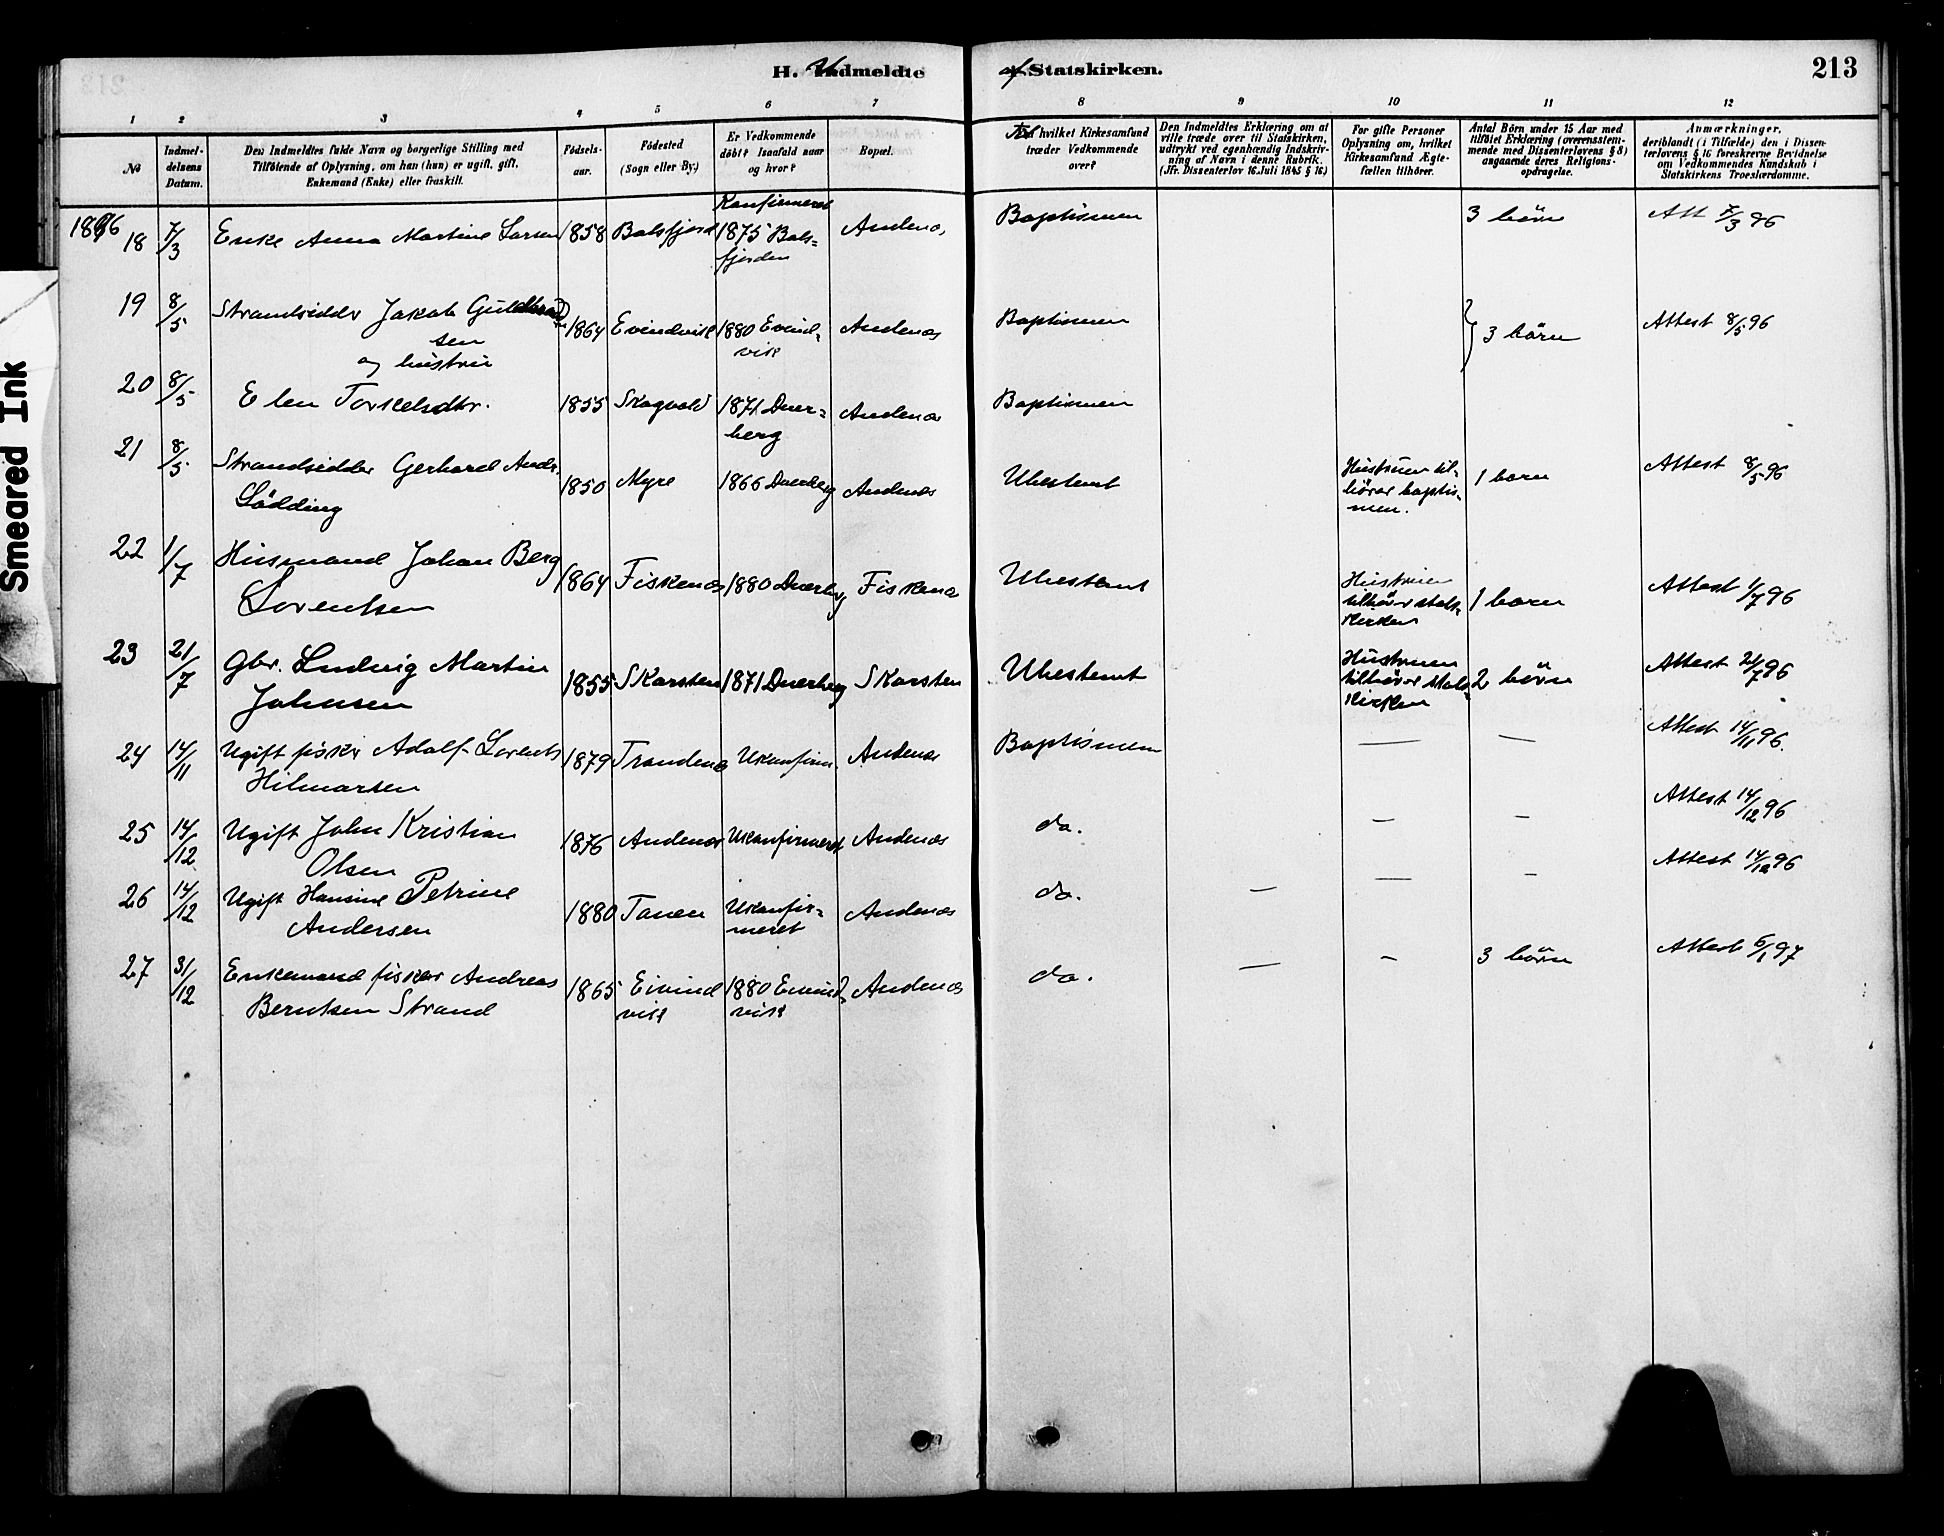 213
H. Udmeldte af Statskirken.
1 2 3 4 5 6 7 8 9 10 11 12
№
Indmel-
delsens
Datum.
Den Indmeldtes fulde Navn og borgerlige Stilling med
Tilföiende af Oplysning, om han (hun) er ugift, gift,
Enkemand (Enke) eller fraskilt.
Födsels-
aar.
Födested
(Sogn eller By.)
Er Vedkommende
döbt? Isaafald naar
og hvor?
Bopæl.
Til hvilket Kirkesamfund
træder Vedkommende
over?
Den Indmeldtes Erklæring om at
ville træde over til Statskirken,
udtrykt ved egenhændig Indskriv-
ning af Navn i denne Rubrik.
(Jfr. Dissenterlov 16. Juli 1845 § 16.)
For gifte Personer
Oplysning om, hvilket
Kirkesamfund Ægte-
fællen tilhörer.
Antal Börn under 15 Aar med
tilföiet Erklæring (overensstem-
mende med Dissenterlovens § 8)
angaaende deres Religions-
opdragelse.
Anmærkninger,
deriblandt (i Tilfælde) den i Dissen-
terlovens § 16 foreskrevne Bevidnelse
om Vedkommendes Kundskab i
Statskirkens Troeslærdomme.
1896
18 7/3 Enke Anna Martine Larsen 1858 Balsfjord Konfirmeret
1875 Bals-
fjorden
Andenes Baptismen 3 börn Att 7/3 96
19 8/5 Strandsidder Jakob Guldbrand
sen
og hustru
1864 Evindvik 1880 Evind-
vik
Andenæs Baptismen 3 börn Attest 8/5 96
20 8/5 Elen Torkelsdtr. 1855 Skogvold 1871 Dver-
berg
Andenæs Baptismen
21 8/5 Strandsidder Gerhard Andr.
Lödding
1850 Myre 1866 Dverberg Andenæs Ubestemt Hustruen til-
hörer baptis-
men.
1 barn Attest 8/5 96
22 1/7 Husmand Johan Berg
Lorentsen
1864 Fiskenæs 1880 Dverberg Fiskenæs Ubestemt Hustruen
tilhörer stats-
kirken
1 barn Attest 1/7 96
23 21/7 Gbr. Ludvig Martin
Johnsen
1855 Skarsten 1871 Dverberg Skarsten Ubestemt Hustruen
tilhörer stats-
kirken
2 börn Attest 21/7 96
24 14/11 Ugift fisker Adolf Lorents
Hilmarsen
1879 Trondenæs Ukonfirm. Andenæs Baptismen — — Attest 14/11 96.
25 14/12 Ugift John Kristian
Olsen
1876 Andenæs Ukonfirmeret Andenæs do. — — Attest 14/12 96
26 14/12 Ugift Hansine Petrine
Andersen
1880 Tanen Ukonfir-
meret
Andenæs do. — — — Attest 14/12 96
27 31/12 Enkemand fisker Andreas
Berntsen Strand
1865 Eivind
vik
1880 Eivind
vik
Andenæs do. — — 3 börn Attest 6/1 97
Smeared Ink